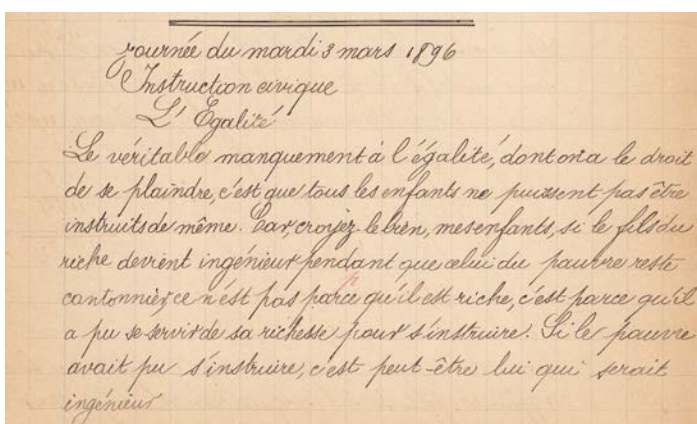 Journée du mardi 3 mars 1896
Instruction civique
L'Égalité
Le véritable manquement à l'égalité, dont on a le droit
de se plaindre, c'est que tous les enfants ne puissent pas être
instruits de même. Car, croyez-le bien, mes enfants, si le fils du
riche devient ingénieur pendant que celui du pauvre reste
cantonnier, ce n'est pas parce qu'il est riche, c'est parce qu'il
a pu se servir de sa richesse pour s'instruire. Si le pauvre
avait pu s'instruire, c'est peut-être lui qui serait
ingénieur